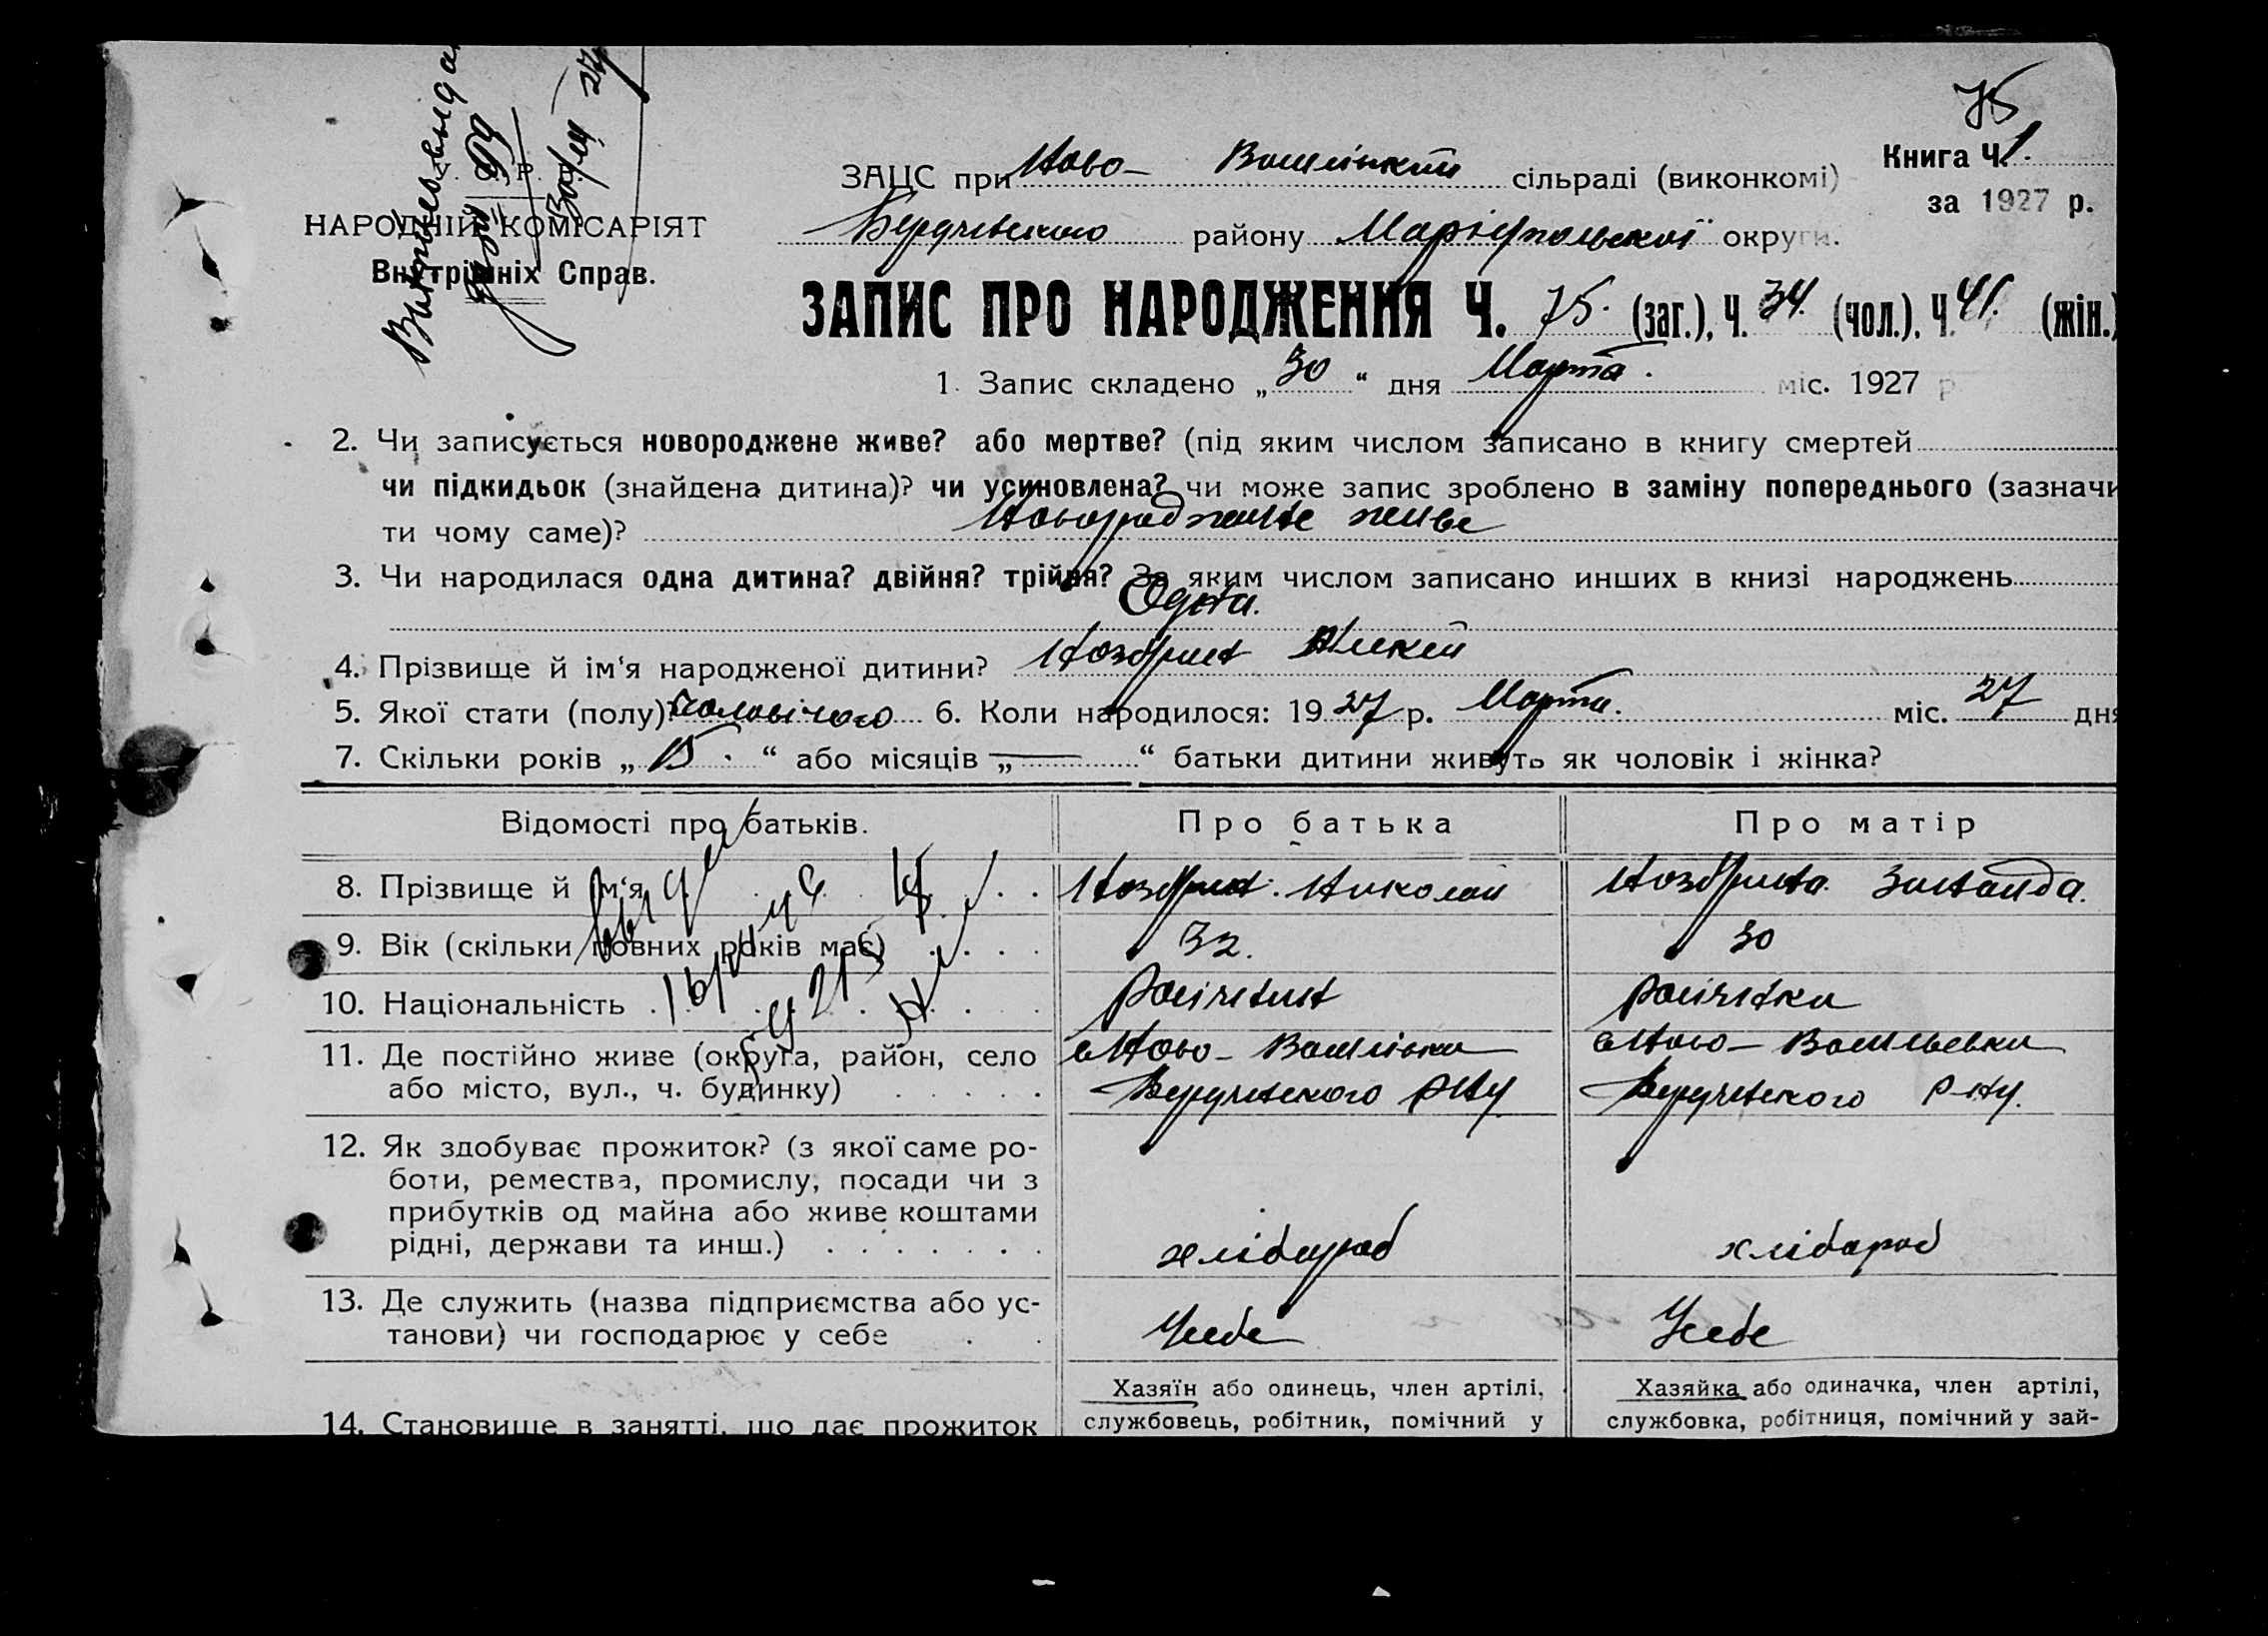 75
ЗАЦС при Ново- сільраді (виконкомі)
Книга Ч. 1.
за 1927 р.
НАРОДНІЙ КОМІСАРІЯТ
Внутрішніх Справ.
району Маріупольскої округи.
ЗАПИС ПРО НАРОДЖЕННЯ Ч. 75. (заг.), Ч. 34. (чол.), Ч. 41. (жін.)
1. Запис складено „ 30 “ дня Марта. міс. 1927 р
2. Чи записується новороджене живе? або мертве? (під яким числом записано в книгу смертей
чи підкидьок (знайдена дитина)? чи усиновлена? чи може запис зроблено в заміну попереднього (зазначи
ти чому саме)? живе
3. Чи народилася одна дитина? двійня? трійня? За яким числом записано инших в книзі народжень
Одна.
4. Прізвище й ім‘я народженої дитини? Ноздрин
5. Якої стати (полу)? чоловічого 6. Коли народилося: 19 27 р. Марта. міс. 27 дня
7. Скільки років „ 15 · “ або місяців „ — “ батьки дитини живуть як чоловік і жінка?
Відомості про батьків. Про батька Про матір
8. Прізвище й ім‘я . . . Ноздрин. Николай Ноздрина. Зинаида.
9. Вік (скільки повних років має) . . . . 32. 30
10. Національність . . . . росіянин росіянка
11. Де постійно живе (округа, район, село Ново- Ново-
або місто, вул., ч. будинку) . . . . .
12. Як здобуває прожиток? (з якої саме ро-
боти, ремества, промислу, посади чи з
прибутків од майна або живе коштами
рідні, держави та инш.) . . . . . . . хлібороб хлібороб
13. Де служить (назва підприємства або ус-
танови) чи господарює у себе . . Усебе Усебе
Хазяїн або одинець, член артілі, Хазяйка або одиначка, член артілі,
14. Становище в занятті, що дає прожиток службовець, робітник, помічний у службовка, робітниця, помічний у зай-